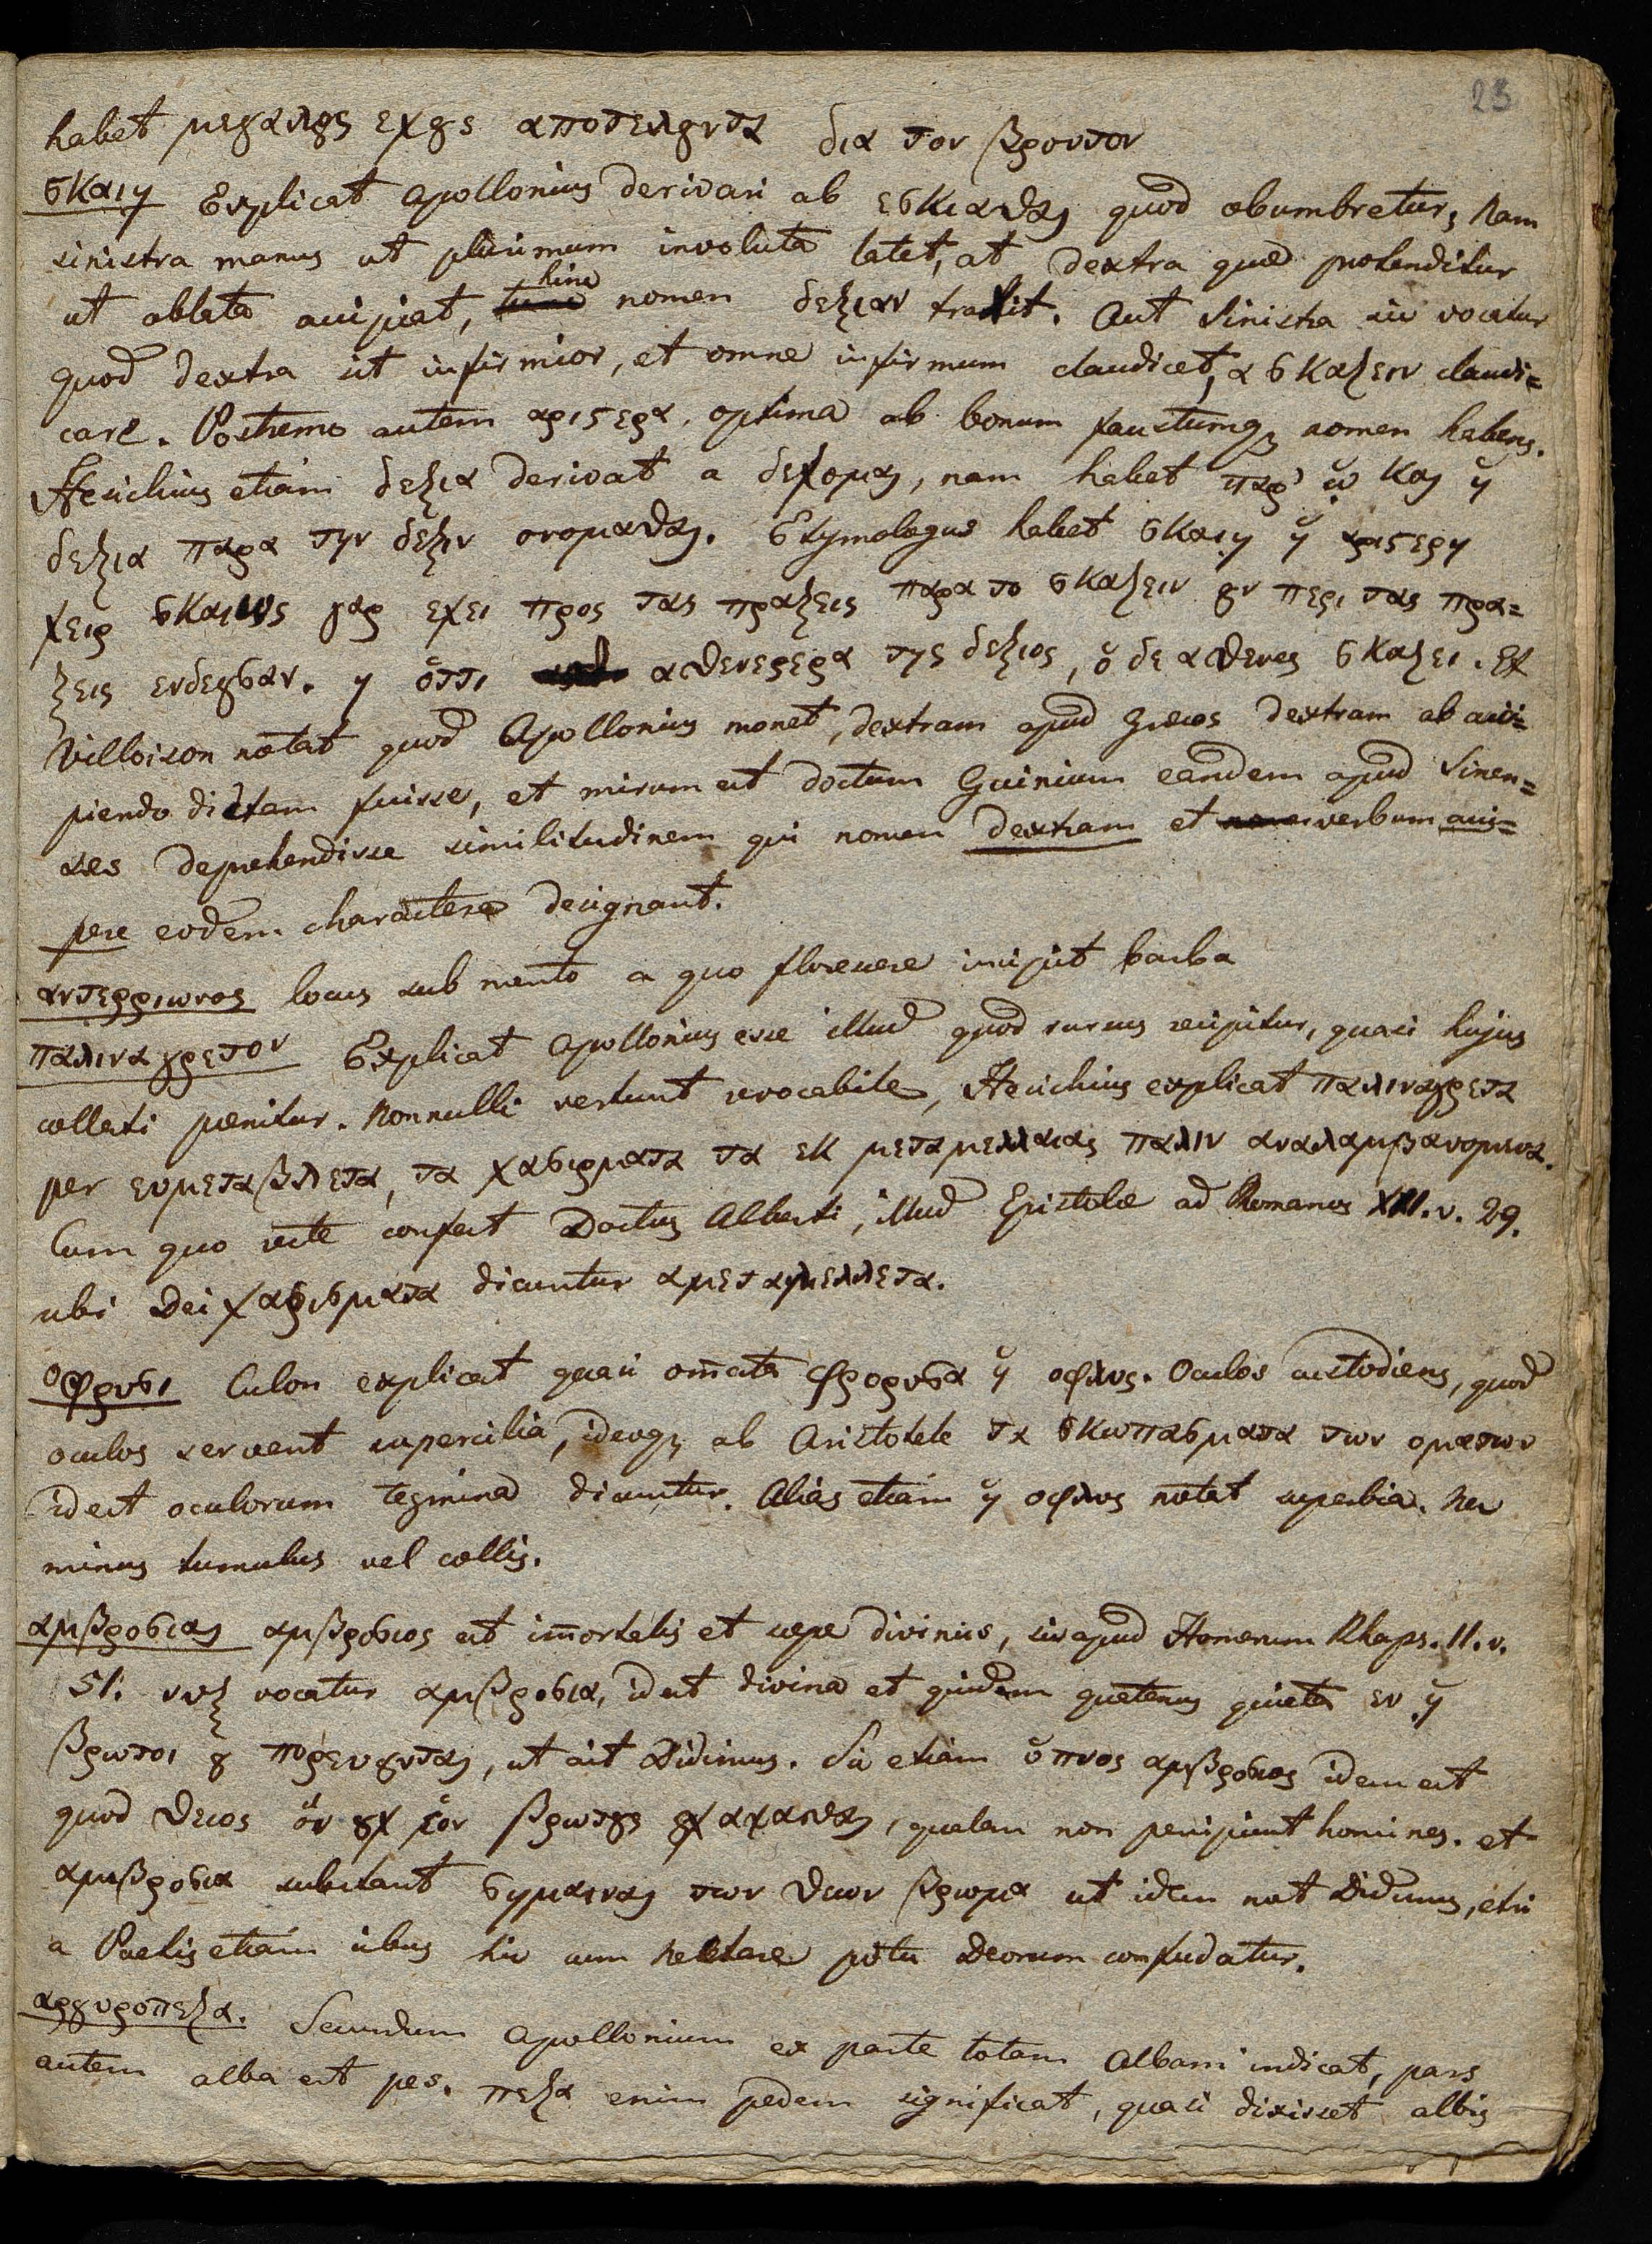 23
habet μεγαλους εχους αποτελουντα δια τον βροντον
σκαιη Explicat Apollonius derivari ab εσκιασθαι quod obumbretur, nam
sinistra manus ut plurimum involuta latet, at dextra quae protenditur
ut oblata accipiat, hinc nomen δεξιαν traxit. Aut sinistra sic vocatur
quod dextra sit infirmior, et omne infirmum claudicet, α σκαζειν claudi=
care. Postremo autem αριστερα, optima ab bonum faustumq; nomen habens.
Hesichius etiam δεξια derivat a δεχομαι, nam habet παρ' ω και η
δεξια παρα την δεξιν ονομασθαι. Etymologus habet σκαιη η αριστερη
χειρ σκαιως γαρ εχει προς τας πραξεις παρα το σκαζειν ουν περι τας πρα=
ξεις ενδεουσαν. η οττι ασθενεστερα της δεξιος, ο δε ασθενες σκαζει. Et
Villoison notat quod Apollonius monet, dextram apud Graecos dextram ab acci=
piendo dictam fuisse, et mirum est doctum Guinium eandem apud Sinen=
ses deprehendisse similitudinem qui nomen dextram et verbum acci=
pere eodem charactere designant.
αντερριωνος locus sub mento a quo florescere incipit barba
παλιναγρετον Explicat Apollonius esse illud quod rursus recipitur, quasi hujus
collecti poenitur. Nonnulli vertunt revocabile, Hesichius explicat παλιναγρετα
per ευμεταβλετα, τα χαρισματα τα εκ μεταμελλαιας παλιν αναλαμβανομενα.
Cum quo recte confert Doctus Alberti, illud Epistolae ad Romanos XII. v. 29.
ubi Dei χαρισματα dicuntur αμεταμελλετα.
οφρυσι Culon explicat quasi om̄ata φρορυσα η οφλυς. Oculos custodiens, quod
oculos servent supercilia, ideoq; ab Aristotele τα σκωπασματα των οματων
id est oculorum tegmina dicuntur. Alias etiam η οφλυς notat superbia. nec
minus tumulus vel collis.
αμβροσιαι αμβροσιος est im̄ortalis et saepe divinus, sic apud Homerum Rhaps. 11. v.
51. νυξ vocatur αμβροσια, id est divina et quidem quatenus quieta εν η
βρωτοι ου πορευουνται, ut ait Didimus. Sic etiam υπνος αμβροσιος idem est
quod θειος ον ουχ εον βρωτους ουχ αχαισθαι, qualem non percipiunt homines. et
αμβροσια substant σημαιναι των θεων βρωμα ut idem not Didimus, etsi
a Poetis etiam cibus hic cum Nectare potu Deorum confudatur.
αργυροπεζα. Secundum Apollonium ex parte totam Albam indicat, pars
autem alba est pes. πεζα enim pedem significat, quasi dixisset albis